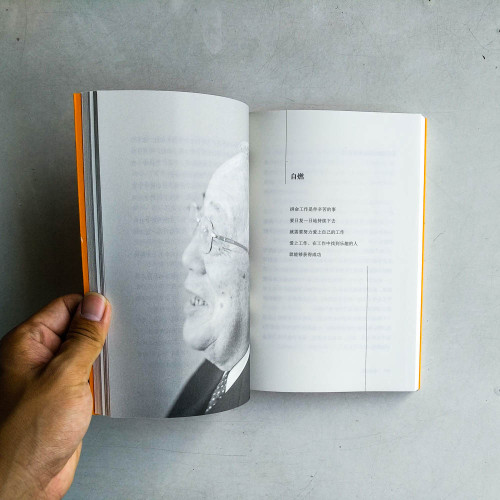 自燃
拼命工作是件辛苦的事
要日复一日地持续下去
就需要努力爱上自己的工作
爱上工作，在工作中找到乐趣的人
都能够获得成功